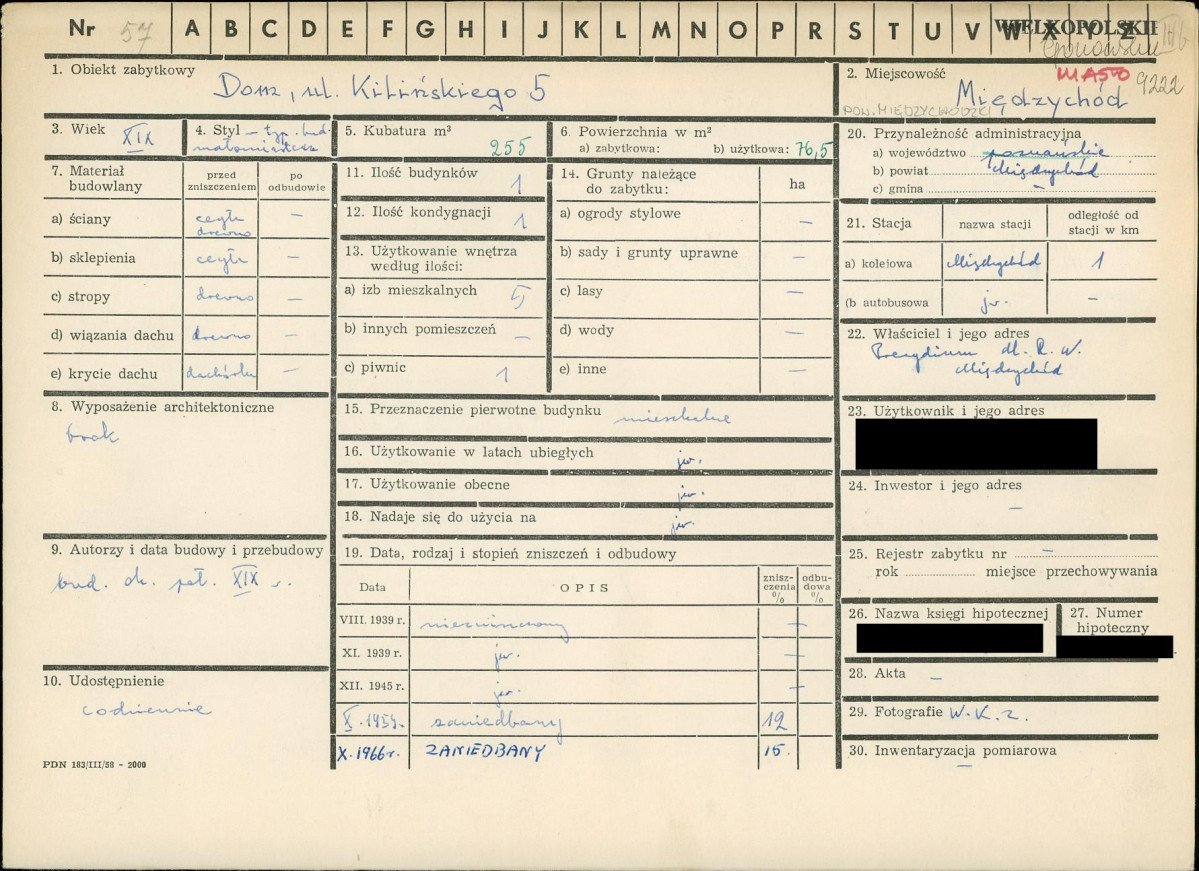 Nr 57 A B C D E F G H I J K L M N O P R S T U V W X Y Z
WIELKOPOLSKIE
1. Obiekt zabytkowy
Dom, ul. Kilińskiego 5
2. Miejscowość
MIASTO 9222
POW. MIĘDZYCHODZKI
Międzychód
3. Wiek XIX
4. Styl – typ. bud.
małomiasteczk.
5. Kubatura m³
255
6. Powierzchnia w m²
a) zabytkowa: b) użytkowa: 76,5
7. Materiał budowlany
przed zniszczeniem
po odbudowie
a) ściany cegła drewno –
b) sklepienia cegła –
c) stropy drewno –
d) wiązania dachu drewno –
e) krycie dachu dachówka –
8. Wyposażenie architektoniczne
brak
9. Autorzy i data budowy i przebudowy
bud. ok. poł. XIX w.
10. Udostępnienie
codziennie
PDN 183/III/58 – 2000
11. Ilość budynków 1
12. Ilość kondygnacji 1
13. Użytkowanie wnętrza
według ilości:
a) izb mieszkalnych 5
b) innych pomieszczeń –
c) piwnic 1
14. Grunty należące
do zabytku:
ha
a) ogrody stylowe –
b) sady i grunty uprawne –
c) lasy –
d) wody –
e) inne –
15. Przeznaczenie pierwotne budynku mieszkalne
16. Użytkowanie w latach ubiegłych jw.
17. Użytkowanie obecne jw.
18. Nadaje się do użycia na jw.
19. Data, rodzaj i stopień zniszczeń i odbudowy
Data OPIS zniszczenia % odbudowa %
VIII. 1939 r. niezniszczony –
XI. 1939 r. jw. –
XII. 1945 r. jw. –
X. 1959 r. zaniedbany 12
X. 1966 r. ZANIEDBANY 15.
20. Przynależność administracyjna
a) województwo poznańskie
b) powiat Międzychód
c) gmina –
21. Stacja nazwa stacji odległość od stacji w km
a) kolejowa Międzychód 1
(b autobusowa jw. –
22. Właściciel i jego adres
Prezydium M. R. N.
Międzychód
23. Użytkownik i jego adres
24. Inwestor i jego adres
–
25. Rejestr zabytku nr –
rok miejsce przechowywania
26. Nazwa księgi hipotecznej
27. Numer
hipoteczny
28. Akta –
29. Fotografie W. K. Z.
30. Inwentaryzacja pomiarowa
–